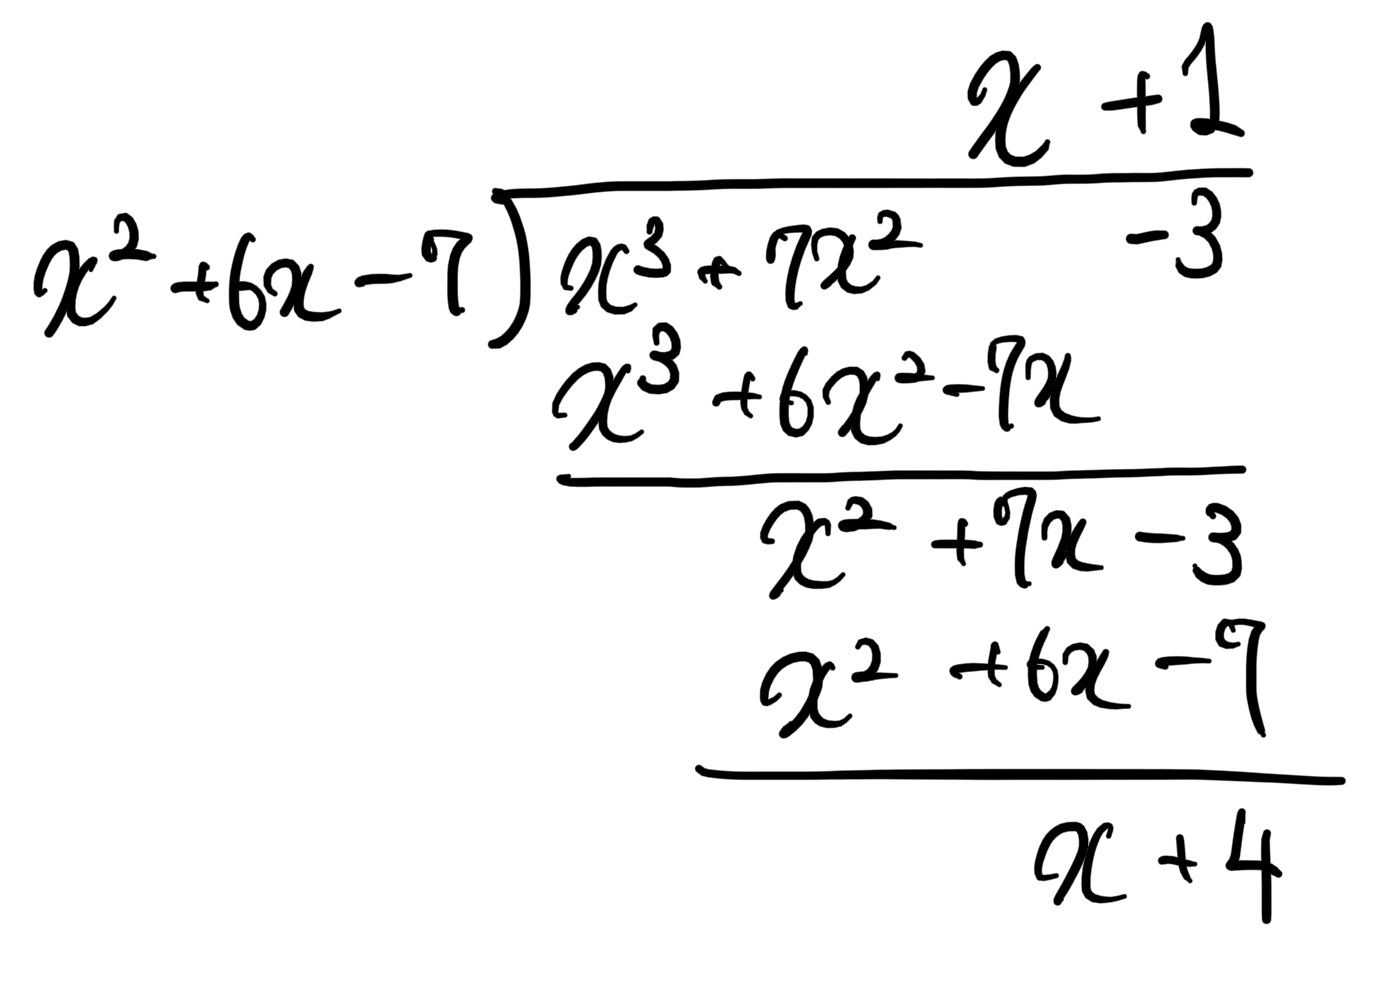 x + 1
x² + 6x - 7 ) x³ + 7x² - 3
x³ + 6x² - 7x
x² + 7x - 3
x² + 6x - 7
x + 4